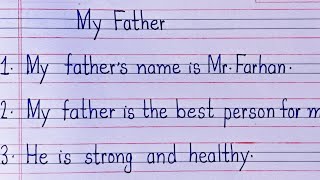 My Father
1. My father's name is Mr. Farhan.
2. My father is the best person for
3. He is strong and healthy.